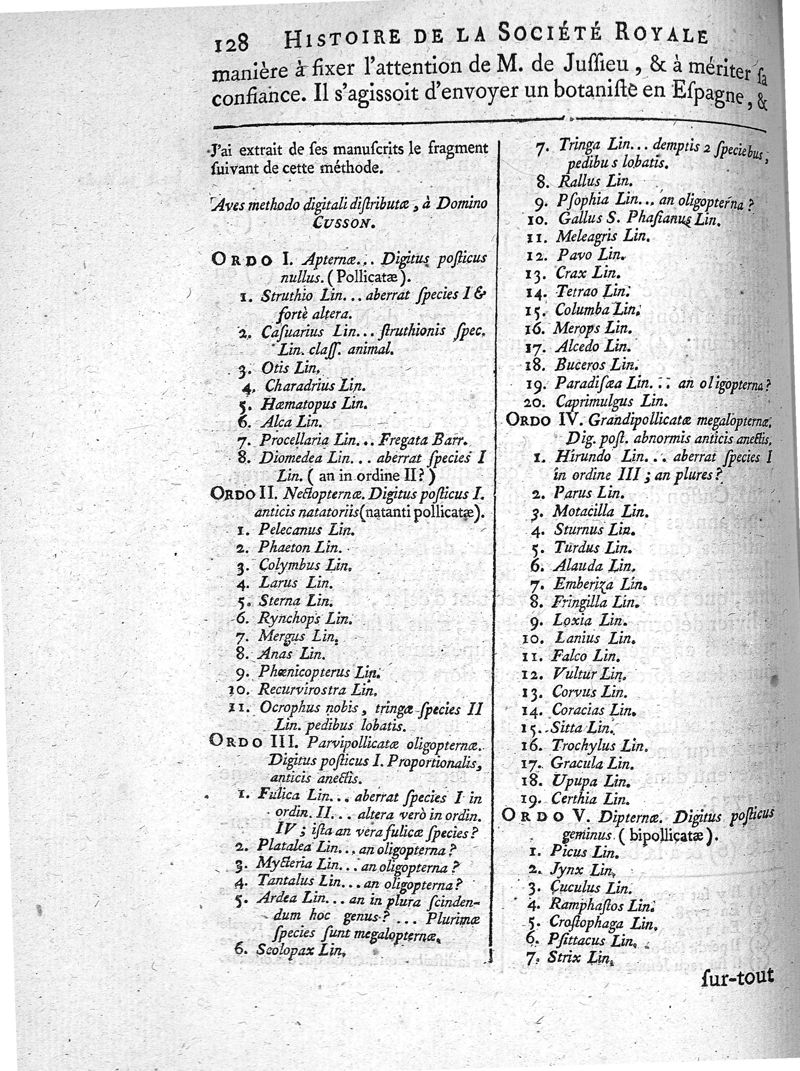 128 HISTOIRE DE LA SOCIÉTÉ ROYALE
manière à fixer l'attention de M. de Juſſieu, & à mériter ſa
confiance. Il s'agiſſoit d'envoyer un botaniſte en Eſpagne, &
J'ai extrait de ſes manuſcrits le fragment
ſuivant de cette méthode.
Aves methodo digitali diſtributæ, à Domino
CUSSON.
ORDO I. Apternæ... Digitus poſticus
nullus. (Pollicatæ).
1. Struthio Lin... aberrat ſpecies I &
fortè altera.
2. Caſuarius Lin... ſtruthionis ſpec.
Lin. claſſ. animal.
3. Otis Lin.
4. Charadrius Lin.
5. Hæmatopus Lin.
6. Alca Lin.
7. Procellaria Lin... Fregata Barr.
8. Diomedea Lin... aberrat ſpecies I
Lin. ( an in ordine II? )
ORDO II. Nectopternæ. Digitus poſticus I.
anticis natatoriis (natanti pollicatæ).
1. Pelecanus Lin.
2. Phaeton Lin.
3. Colymbus Lin.
4. Larus Lin.
5. Sterna Lin.
6. Rynchops Lin.
7. Mergus Lin.
8. Anas Lin.
9. Phœnicopterus Lin.
10. Recurviroſtra Lin.
11. Ocrophus nobis, tringæ ſpecies II
Lin. pedibus lobatis.
ORDO III. Parvipollicatæ oligopternæ.
Digitus poſticus I. Proportionalis,
anticis anectis.
1. Fulica Lin... aberrat ſpecies I in
ordin. II... altera verò in ordin.
IV ; iſta an vera fulicæ ſpecies ?
2. Platalea Lin... an oligopterna ?
3. Mycteria Lin... an oligopterna ?
4. Tantalus Lin... an oligopterna ?
5. Ardea Lin... an in plura ſcinden-
dum hoc genus ? ... Plurimæ
ſpecies ſunt megalopternæ.
6. Scolopax Lin.
7. Tringa Lin... demptis 2 ſpeciebus,
pedibus lobatis.
8. Rallus Lin.
9. Pſophia Lin... an oligopterna ?
10. Gallus S. Phaſianus Lin.
11. Meleagris Lin.
12. Pavo Lin.
13. Crax Lin.
14. Tetrao Lin.
15. Columba Lin.
16. Merops Lin.
17. Alcedo Lin.
18. Buceros Lin.
19. Paradiſæa Lin... an oligopterna ?
20. Caprimulgus Lin.
ORDO IV. Grandipollicatæ megalopternæ.
Dig. poſt. abnormis anticis anectis.
1. Hirundo Lin... aberrat ſpecies I
in ordine III ; an plures ?
2. Parus Lin.
3. Motacilla Lin.
4. Sturnus Lin.
5. Turdus Lin.
6. Alauda Lin.
7. Emberiza Lin.
8. Fringilla Lin.
9. Loxia Lin.
10. Lanius Lin.
11. Falco Lin.
12. Vultur Lin.
13. Corvus Lin.
14. Coracias Lin.
15. Sitta Lin.
16. Trochylus Lin.
17. Gracula Lin.
18. Upupa Lin.
19. Certhia Lin.
ORDO V. Dipternæ. Digitus poſticus
geminus. ( bipollicatæ ).
1. Picus Lin.
2. Jynx Lin.
3. Cuculus Lin.
4. Ramphaſtos Lin.
5. Croſtophaga Lin.
6. Pſittacus Lin.
7. Strix Lin.
ſur-tout